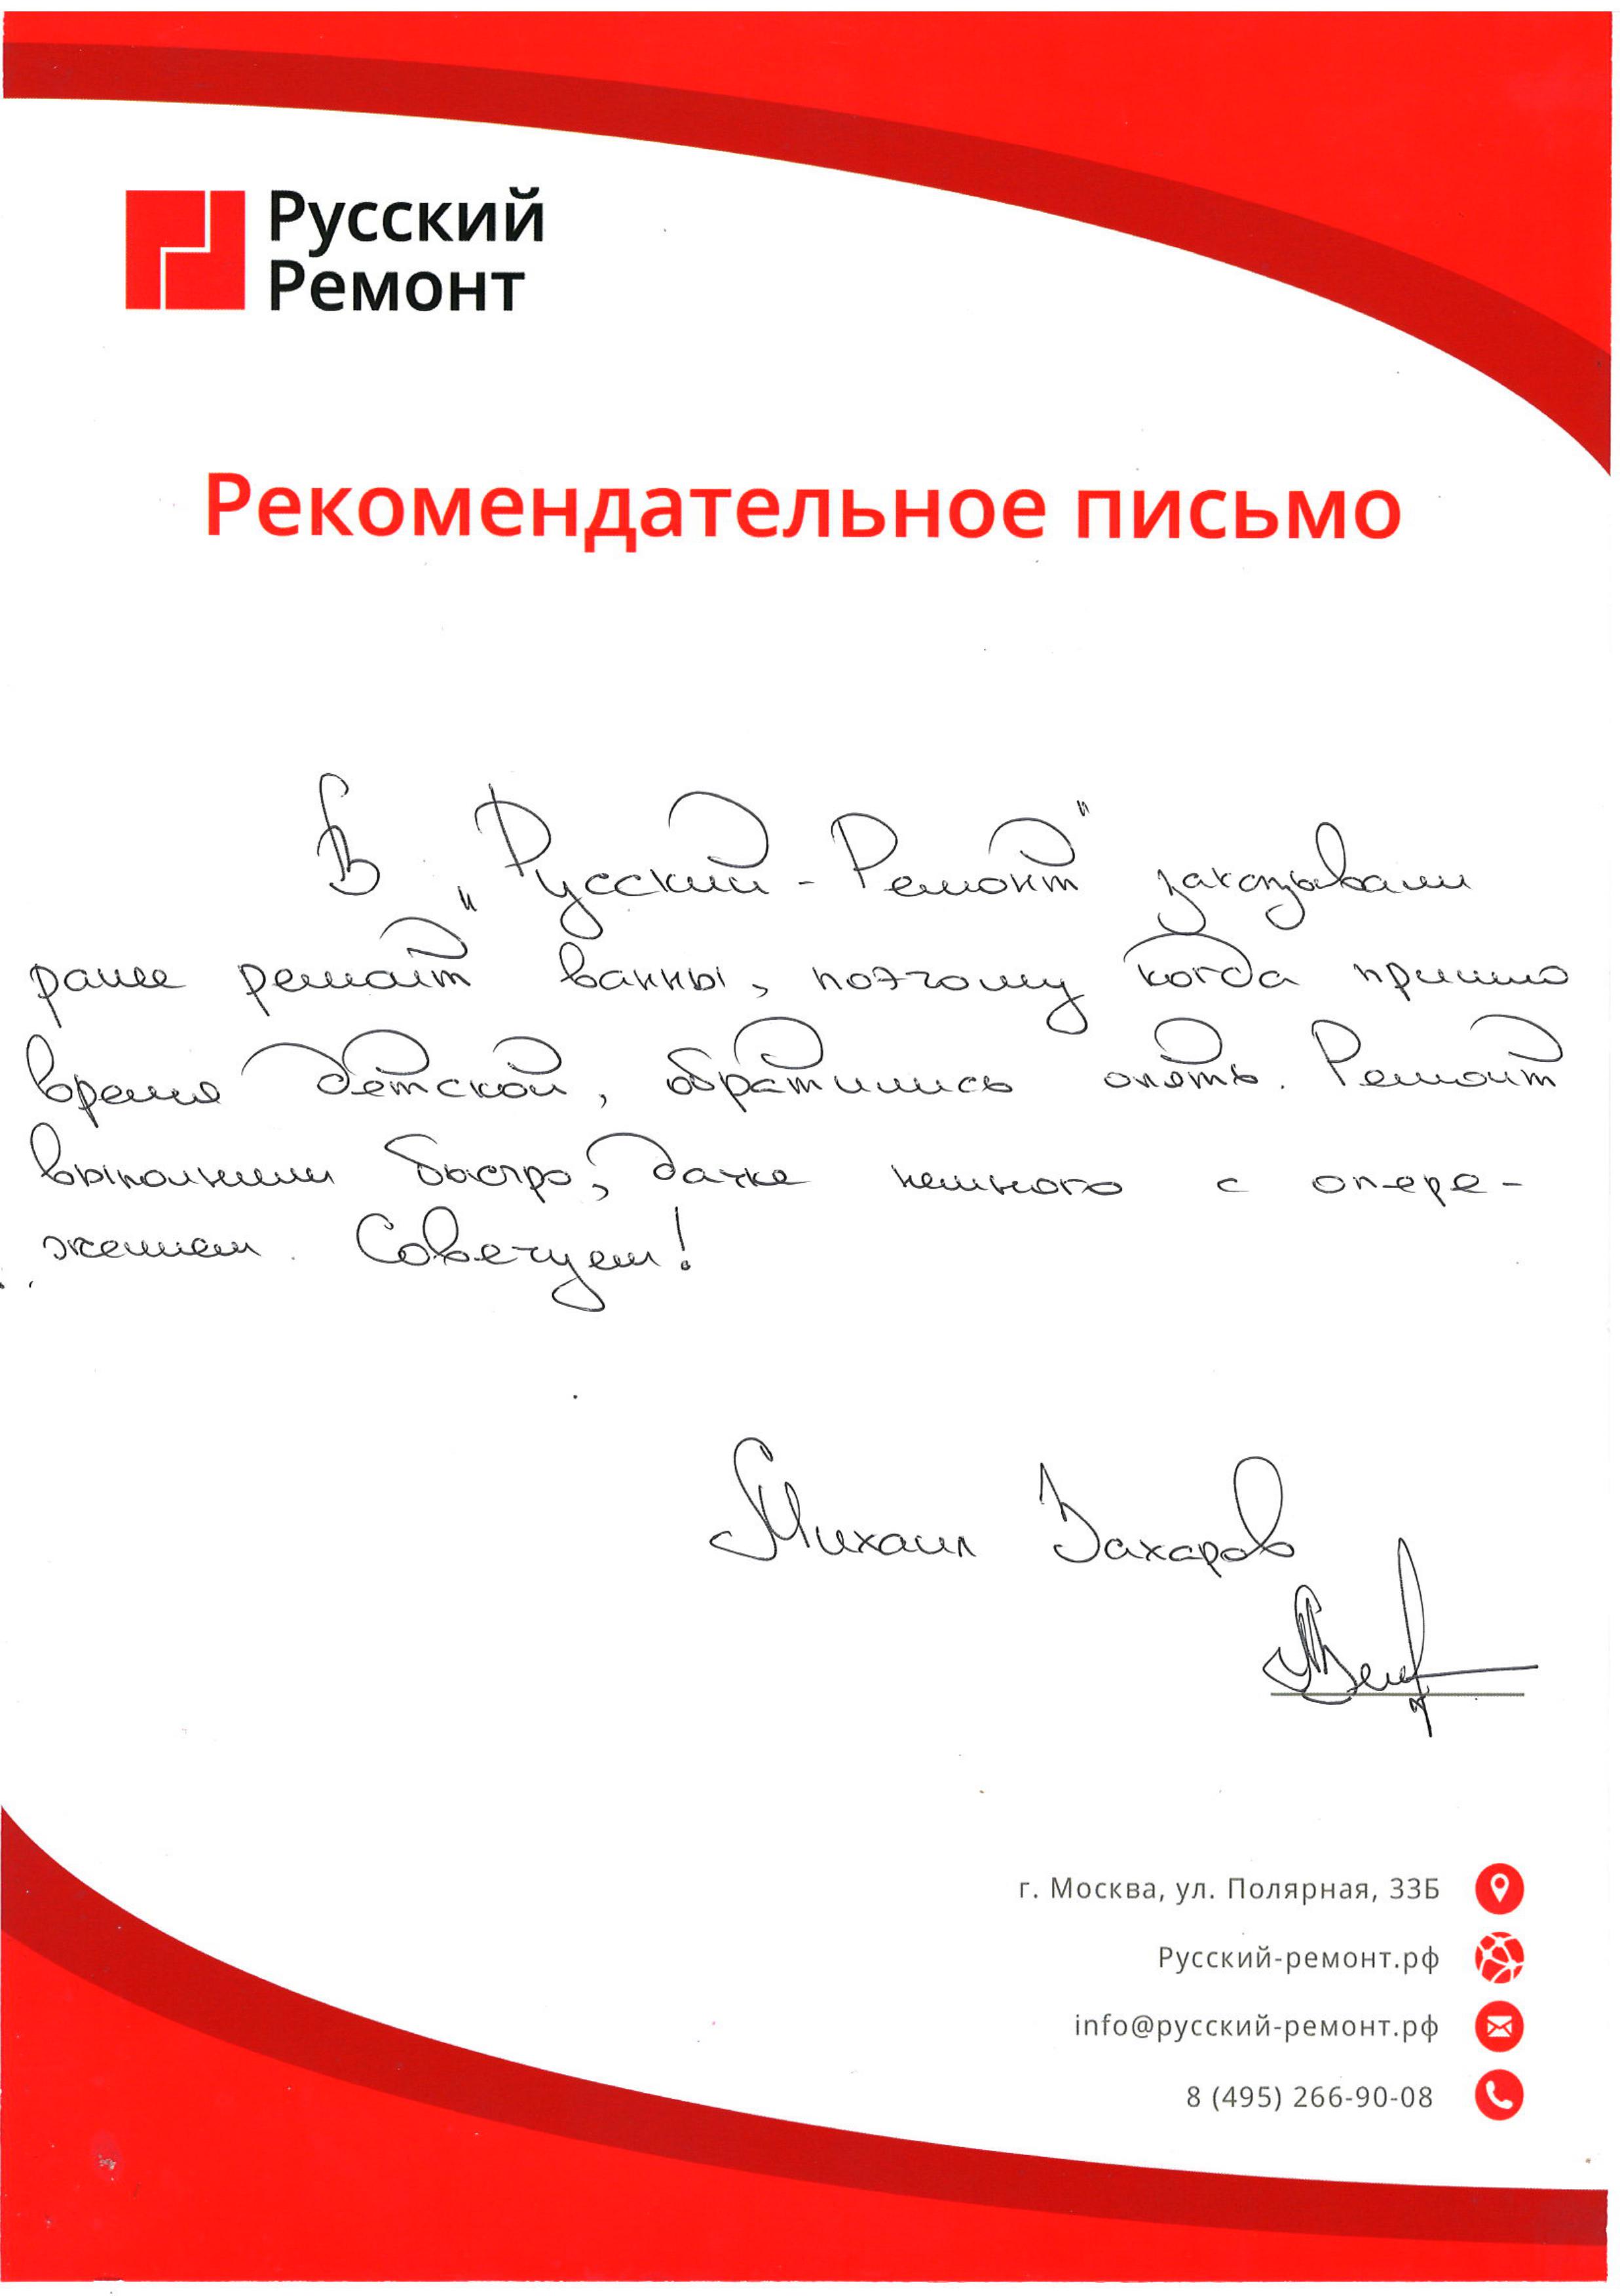 Русский
Ремонт
Рекомендательное письмо
В „Русский-Ремонт" заказывали
ранее ремонт ванны, поэтому когда пришло
время детской, обратились опять. Ремонт
выполнили быстро, даже немного с опере-
жением. Советуем!
Михаил Захаров
г. Москва, ул. Полярная, 33Б
Русский-ремонт.рф
info@русский-ремонт.рф
8 (495) 266-90-08